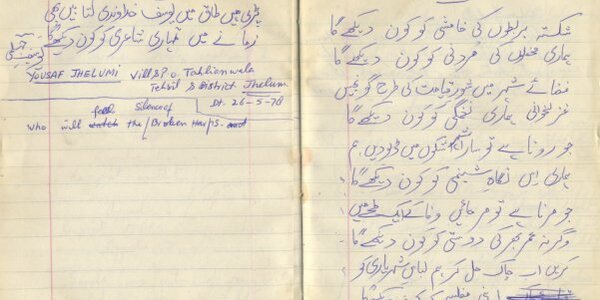 پڑی ہیں طاق میں یوسف خداوندی کتابیں بھی
زمانے میں تمہاری شاعری کو کون دیکھے گا
YOUSAF JHELUMI Vill & P.O. Tahlianwala
Tehsil & District Jhelum
feel Silence of Dt. 26-5-78
who will watch the / Broken Harps. and
شکستہ بربطوں کی خامشی کو کون دیکھے گا
ہماری محفلوں کی مُردنی کو کون دیکھے گا
فضائے شہر میں شورِ قیامت کی طرح گونجیں
غزلخوانی ہماری نغمگی کو کون دیکھے گا
جو رونا ہے تو سارا شہر اشکوں میں ڈبو دیں ہم
ہماری اس نگاہِ شبنمی کو کون دیکھے گا
جو مرنا ہے تو مر جائیں وفا کے ایک لمحے میں
وگرنہ عمر بھر کی دوستی کو کون دیکھے گا
کریں اب چاک مل کر ہم لباسِ شہریاری کو
کو کون دیکھے گا